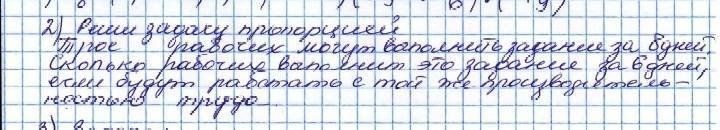 2) Реши задачу пропорцией
Трое рабочих могут ваполнить задание за 8 дней
Сколько рабочих ваполнит это задание за 6 дней,
если будут работать с той же производитель-
ностью трудо
3)